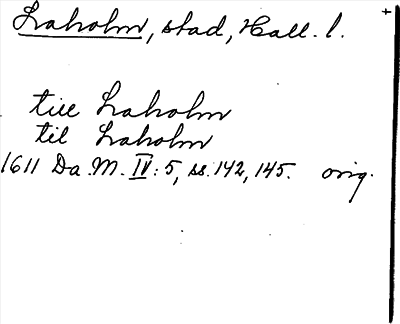 Laholm, stad, Hall. l. +
till Laholm
til Laholm
1611 Da. M. IV: 5, ss. 142, 145. orig.